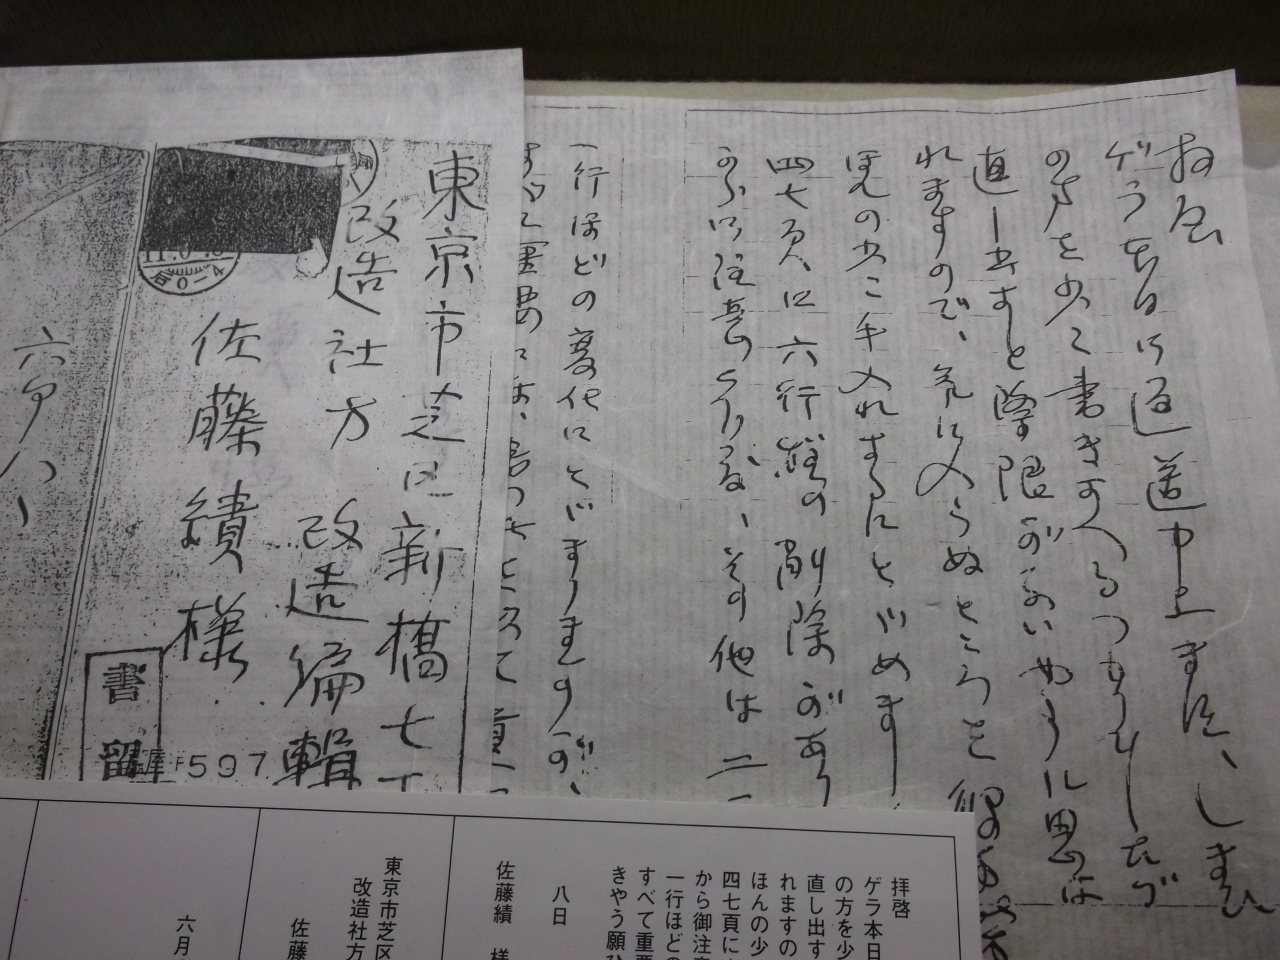 拝啓
ゲラ本日御返送申上ました、しまひ
の方を少し書きすへるつもりでしたが
直し出すと際限がないやうに思は
れますので、気に入らぬところを
ほんの少し手入れするにとゞめました
四七頁に六行程の削除があり
から御注意
その他は二
一行ほどの変化にとゞまりますが、
すべて重要
東京市芝区新橋七丁
改造社方 改造編輯
佐藤績様
書留
597
六月八日
拝啓
ゲラ本日
の方を少
直し出す
れますの
ほんの少
四七頁に
から御注意
一行ほどの
すべて重要
きやう願ひ
八日
佐藤績 様
東京市芝区
改造社方
佐藤
六月